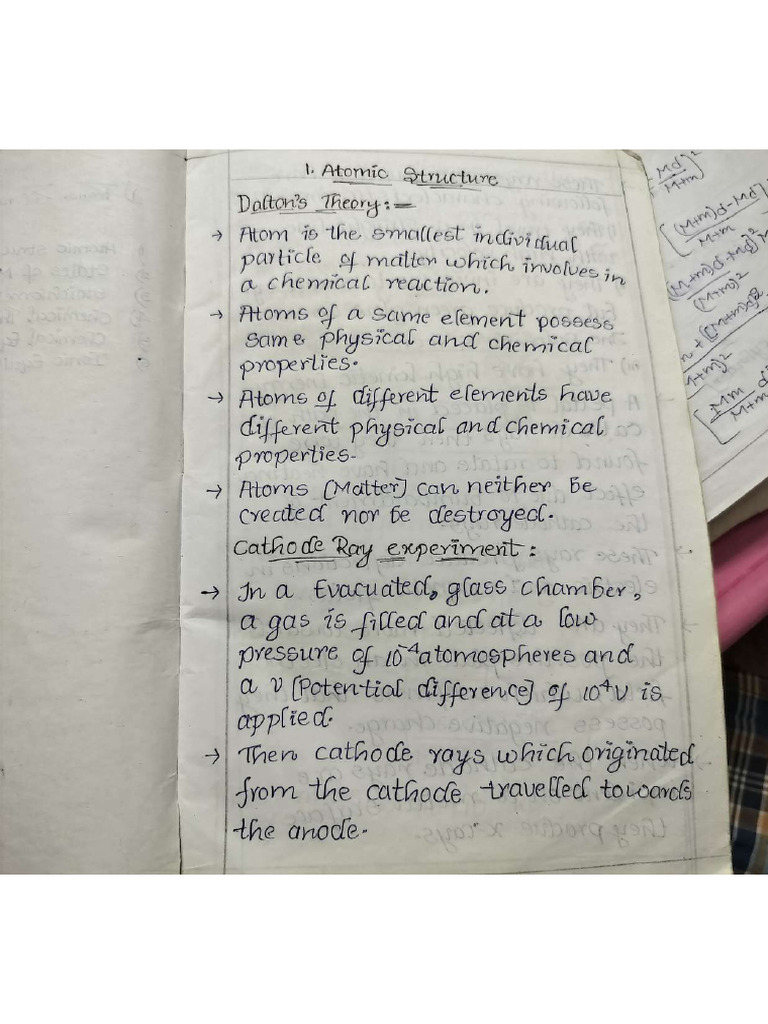 1. Atomic Structure
Dalton's Theory:-
→ Atom is the smallest individual
particle of matter which involves in
a chemical reaction.
→ Atoms of a same element possess
same physical and chemical
properties.
→ Atoms of different elements have
different physical and chemical
properties-
→ Atoms [Matter] can neither be
created nor be destroyed.
Cathode Ray experiment:
→ In a Evacuated, glass chamber,
a gas is filled and at a low
pressure of 10⁻⁴ atomospheres and
a v [Potential difference] of 10⁴V is
applied.
→ Then cathode rays which originated
from the cathode travelled towards
the anode.